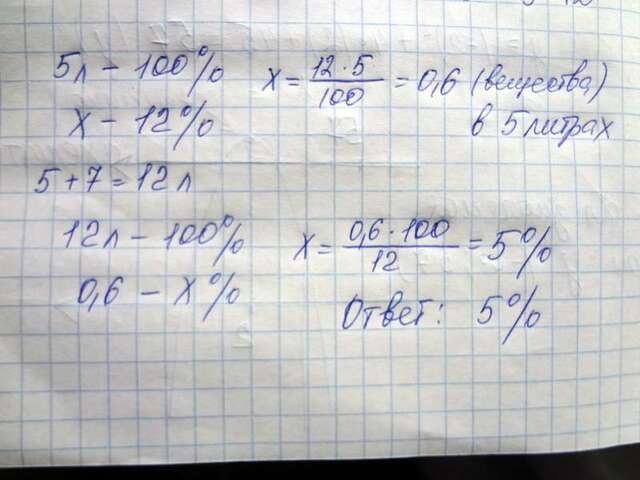 5л – 100% x = 12·5/100 = 0,6 (вещества)
x – 12% в 5 литрах
5+7=12 л
12л – 100% x = 0,6·100/12 = 5%
0,6 – x%
Ответ: 5%